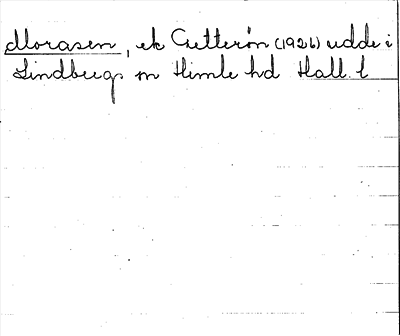 Morasen, ek Getterön (1926) udde i
Lindbergs sn Himle hd Hall. l